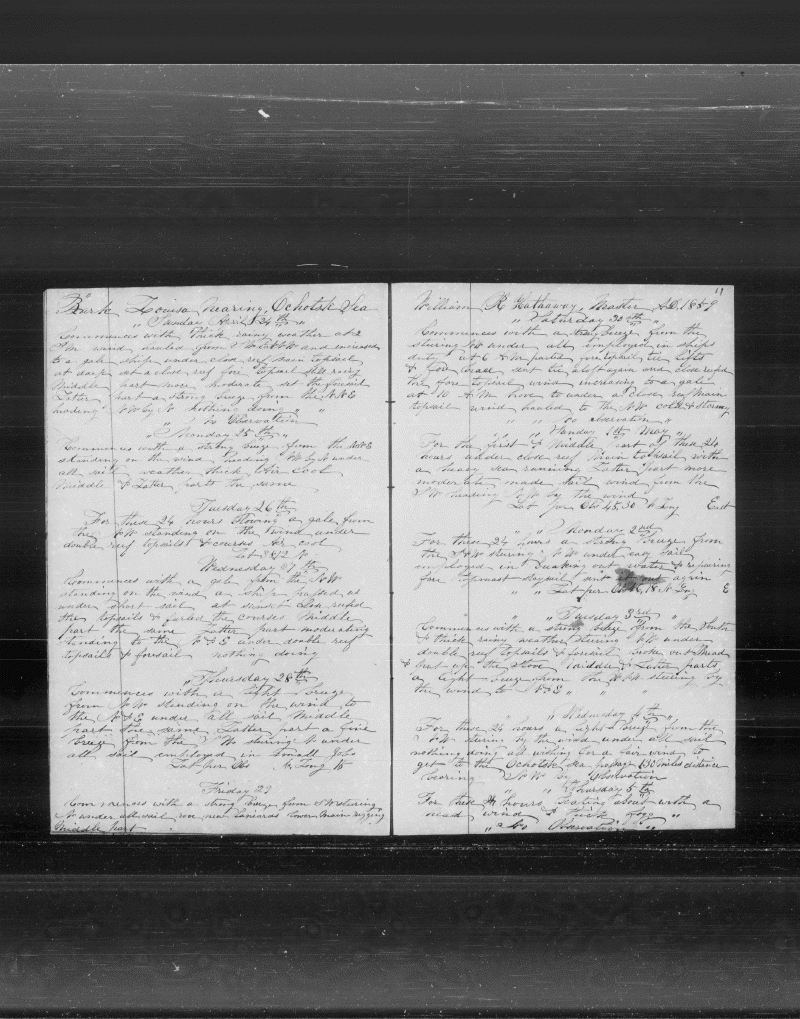 Bark Louisa nearing Ochotsk Sea
" Sunday April 24th "
Commences with thick rainy weather at 2
P.M. wind hauled from to NW and increased
to a gale ship under close reef main topsail
at dark set a close reef fore topsail still rainy
Middle part more moderate set the foresail
Latter part a strong breeze from the NNE
heading NW by N nothing doing " "
" no observation
" Monday 25th "
Commences with a strong breeze from the NNE
standing on the wind heading NW by N under
all sail weather thick Air Cool
Middle & Latter parts the same
Tuesday 26th
For these 24 hours blowing a gale from
the NW standing on the wind under
double reef topsails & courses Air cool
Lat N
Wednesday 27th
Commences with a gale from the NW
standing on the wind a ship passed at
under short sail at sunset close reefed
the topsails & furled the courses Middle
part the same Latter part moderating
standing to the N & E under double reef
topsails & foresail nothing doing
" Thursday 28th
Commences with a light breeze
from NW standing on the wind to
the N & E under all sail Middle
part the same Latter part a fine
breeze from the steering N under
all sail employed in small jobs
Lat per Obs N Long
Friday 29
Commences with a strong breeze from SW steering
N under all sail rove new lanyards lower main rigging
Middle part
11
William H Hathaway Master AD. 1859
" Saturday 30th "
Commences with a strong breeze from the
steering NW under all employed in ships
duty at 6 P.M. parted fore topsail tie lifts
& brace sent tie aloft again and close reefed
the fore topsail wind increasing to a gale
at 10 P.M. hove to under a close reef main
topsail wind hauled to the NW cold & stormy
" " " no observation " "
" Sunday 1st May "
For the first & Middle part of these 24
hours under close reef main topsail with
a heavy sea running Latter part more
moderate made sail wind from the
heading by the wind
Lat per Obs 45.30 N Long East
" " Monday 2nd
For these 24 hours a strong breeze from
the steering NW under easy sail
employed in breaking out water & repairing
fore topmast staysail sent it out again
" " Lat per Obs 46,18 N Long E
" " Tuesday 3rd
Commences with a strong breeze from the South
& thick rainy weather steering NW under
double reef topsails & foresail broke out bread
& put up the stove Middle & Latter parts
a light breeze from the steering by
the wind to NNE " " "
" " Wednesday 4th "
For these 24 hours a light breeze from the
NW steering by the wind under all sail
nothing doing all wishing for a fair wind to
get to the Ochotsk Sea passage 130 miles distance
bearing NW By Observation
" " Thursday 5th
For these 24 hours beating about with a
head wind & thick fog "
" No Observation "